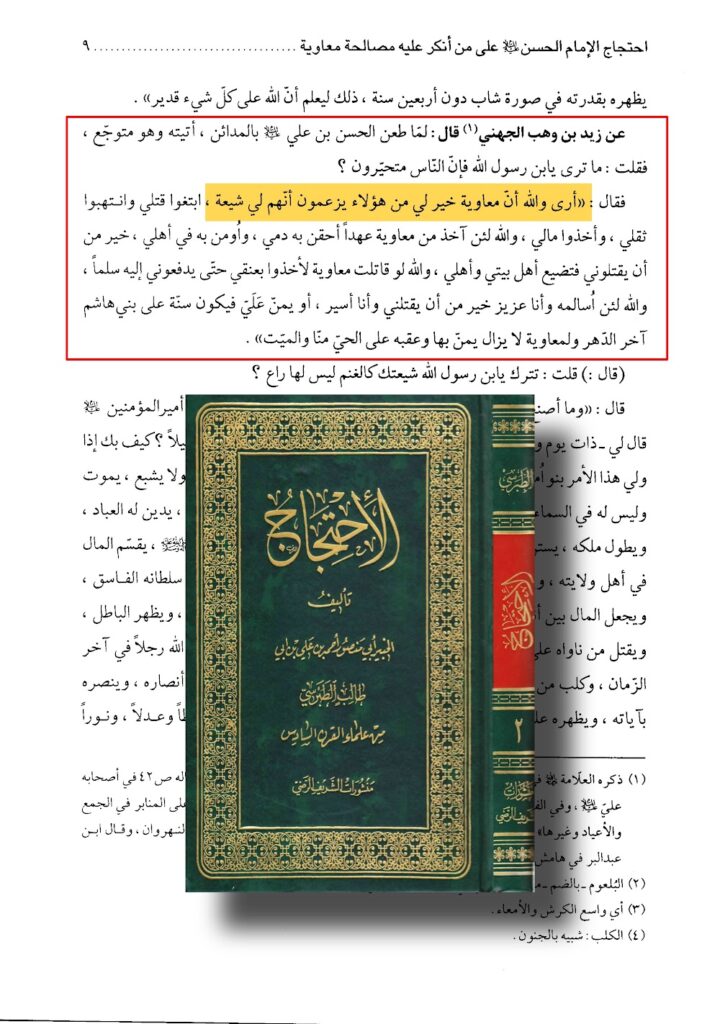 احتجاج الإمام الحسن عليه السلام على من أنكر عليه مصالحة معاوية ..................................... ٩
يظهره بقدرته في صورة شاب دون أربعين سنة ، ذلك ليعلم أنّ الله على كلّ شيء قدير» .
عن زيد بن وهب الجهني (١) قال : لمّا طعن الحسن بن علي عليه السلام بالمدائن ، أتيته وهو متوجّع ،
فقلت : ما ترى يابن رسول الله فإنّ النّاس متحيّرون ؟
فقال : «أرى والله أنّ معاوية خير لي من هؤلاء يزعمون أنّهم لي شيعة ، ابتغوا قتلي وانتهبوا
ثقلي ، وأخذوا مالي ، والله لئن آخذ من معاوية عهداً أحقن به دمي ، وأومن به في أهلي ، خير من
أن يقتلوني فتضيع أهل بيتي وأهلي ، والله لو قاتلت معاوية لأخذوا بعنقي حتّى يدفعوني إليه سلماً ،
والله لئن أُسالمه وأنا عزيز خير من أن يقتلني وأنا أسير ، أو يمنّ عَلَيّ فيكون سنّة على بني‌هاشم
آخر الدّهر ولمعاوية لا يزال يمنّ بها وعقبه على الحيّ منّا والميّت» .
(قال :) قلت : تترك يابن رسول الله شيعتك كالغنم ليس لها راع ؟
قال : «وما أصنع
أميرالمؤمنين عليه السلام
قال لي ـ ذات يوم
؟ كيف بك إذا
ولي هذا الأمر بنو
ولا يشبع ، يموت
وليس له في السماء
، يدين له العباد ،
ويطول ملكه ،
، يقسّم المال
في أهل ولايته ،
سلطانه الفاسق ،
ويجعل المال بين
، ويظهر الباطل ،
ويقتل من ناواه
الله رجلاً في آخر
الزّمان ، وكلب من
أنصاره ، وينصره
بآياته ، ويظهره
وعدلاً ، ونوراً
الأحتجاج
تأليف
أبي منصور أحمد بن علي بن أبي
طالب الطبرسي
من علماء القرن السادس
منشورات الشريف الرضي
الطبرسي
الاحتجاج
٢
(١) ذكره العلّامة
ص٤٢ في أصحابه
عليّ عليه السلام ، وفي
على المنابر في الجمع
والأعياد وغيرها»
النهروان ، وقال ابن
عبدالبر في هامش
(٢) البُلعوم ـ بالضم ـ
(٣) أي واسع الكرش والأمعاء .
(٤) الكلب : شبيه بالجنون .